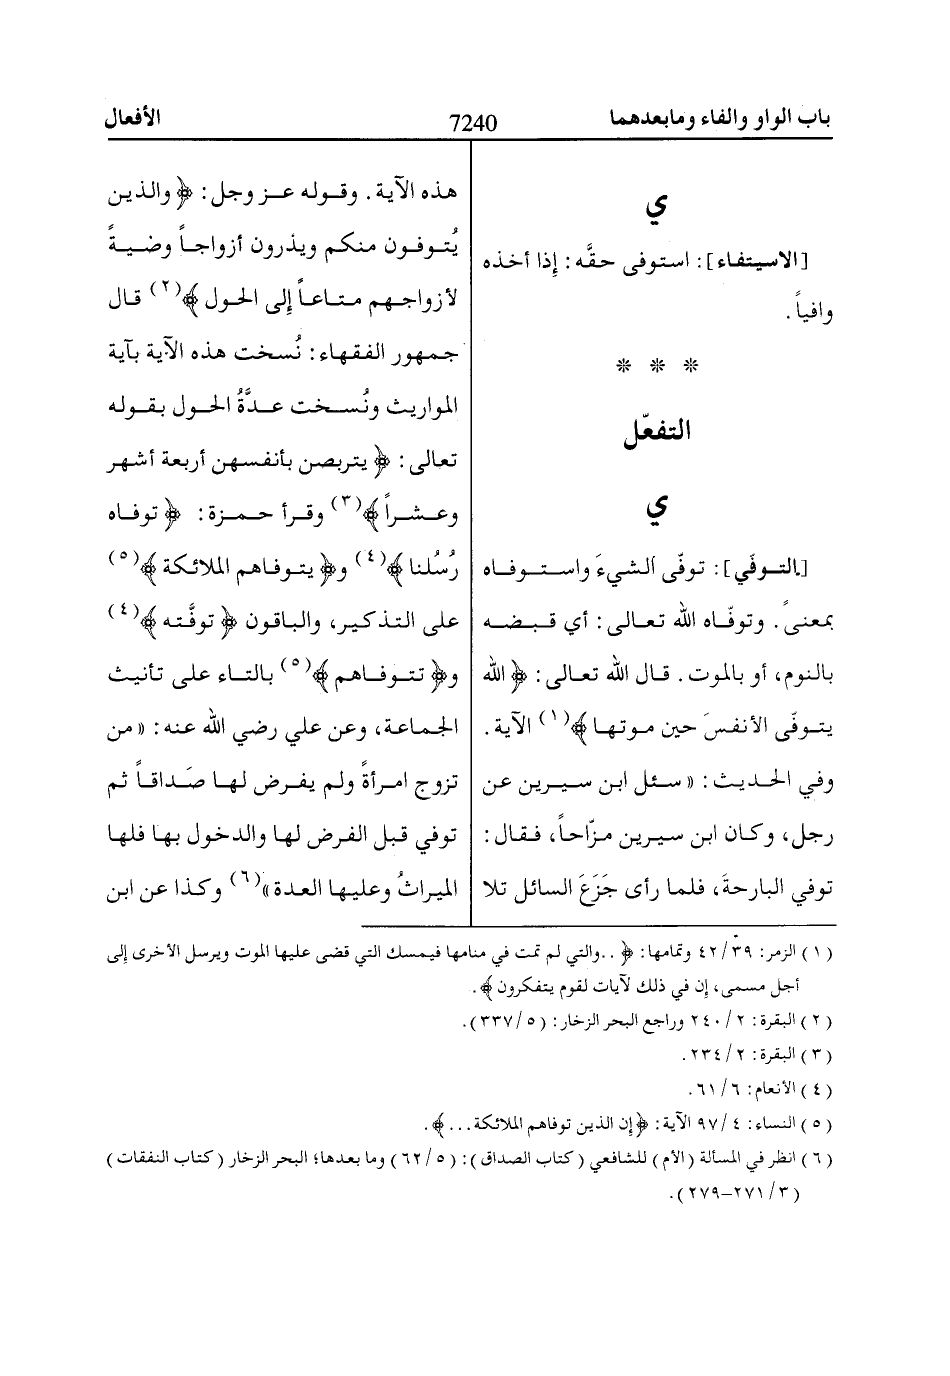 باب الواو والفاء ومابعدهما
7240
الأفعال
ي
[الاسيتفاء]: استوفى حقَّه: إذا أخذه
وافياً.
* * *
التفعّل
ي
[التوفّي]: توفّى الشيءَ واستوفاه
بمعنىً. وتوفّاه الله تعالى: أي قبضه
بالنوم، أو بالموت. قال الله تعالى: ﴿ الله
يتوفّى الأنفسَ حين موتها ﴾(١) الآية.
وفي الحديث: « سئل ابن سيرين عن
رجل، وكان ابن سيرين مزّاحاً، فقال:
توفي البارحةَ، فلما رأى جَزَعَ السائل تلا
هذه الآية. وقوله عز وجل: ﴿ والذين
يُتوفون منكم ويذرون أزواجاً وضيةً
لأزواجهم متاعاً إلى الحول ﴾(٢) قال
جمهور الفقهاء: نُسخت هذه الآية بآية
المواريث ونُسخت عدَّةُ الحول بقوله
تعالى: ﴿ يتربصن بأنفسهن أربعة أشهر
وعشراً ﴾(٣) وقرأ حمزة: ﴿ توفاه
رُسُلنا ﴾(٤) و﴿ يتوفاهم الملائكة ﴾(٥)
على التذكير، والباقون ﴿ توفَّته ﴾(٤)
و﴿ تتوفاهم ﴾(٥) بالتاء على تأنيث
الجماعة، وعن علي رضي الله عنه: « من
تزوج امرأةً ولم يفرض لها صَداقاً ثم
توفي قبل الفرض لها والدخول بها فلها
الميراثُ وعليها العدة »(٦) وكذا عن ابن
(١) الزمر: ٣٩/ ٤٢ وتمامها: ﴿ ..والتي لم تمت في منامها فيمسك التي قضى عليها الموت ويرسل الأخرى إلى
أجل مسمى، إن في ذلك لآيات لقوم يتفكرون ﴾.
(٢) البقرة: ٢/ ٢٤٠ وراجع البحر الزخار: (٥/ ٣٣٧).
(٣) البقرة: ٢/ ٢٣٤.
(٤) الأنعام: ٦/ ٦١.
(٥) النساء: ٤/ ٩٧ الآية: ﴿إن الذين توفاهم الملائكة...﴾.
(٦) انظر في المسألة (الأم) للشافعي (كتاب الصداق): (٥/ ٦٢) وما بعدها؛ البحر الزخار (كتاب النفقات)
(٣/ ٢٧١–٢٧٩).